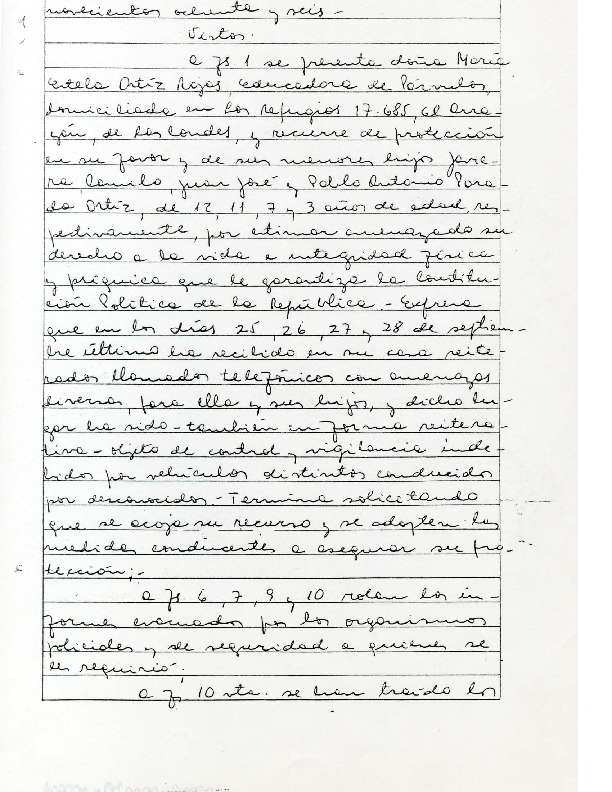 novecientos ochenta y seis.-
Vistos:
a fs 1 se presenta doña María
Estela Ortíz Rojas, educadora de Párvulos,
domiciliada en Los Refugios 17.685, El Arra-
yán, de Las Condes, y recurre de protección
en su favor y de sus menores hijos Jave-
ra, Camilo, Juan José y Pablo Antonio Para-
da Ortíz, de 12, 11, 7 y 3 años de edad, res-
pectivamente, por estimar amenazado su
derecho a la vida e integridad física
y psíquica que le garantiza la Constitu-
ción Política de la República.- Expresa
que en los días 25, 26, 27 y 28 de septiem-
bre último ha recibido en su casa reite-
rados llamados telefónicos con amenazas
diversas, para ella y sus hijos, y dicho lu-
gar ha sido - también en forma reitera-
tiva - objeto de control y vigilancia inde-
bidos por vehículos distintos conducidos
por desconocidos.- Termina solicitando
que se acoja su recurso y se adopten las
medidas conducentes a asegurar su pro-
tección;-
a fs 6, 7, 9 y 10 rolan los in-
formes evacuados por los organismos
policiales y de seguridad a quienes se
les requirió.
a fs 10 vta. se han traído los